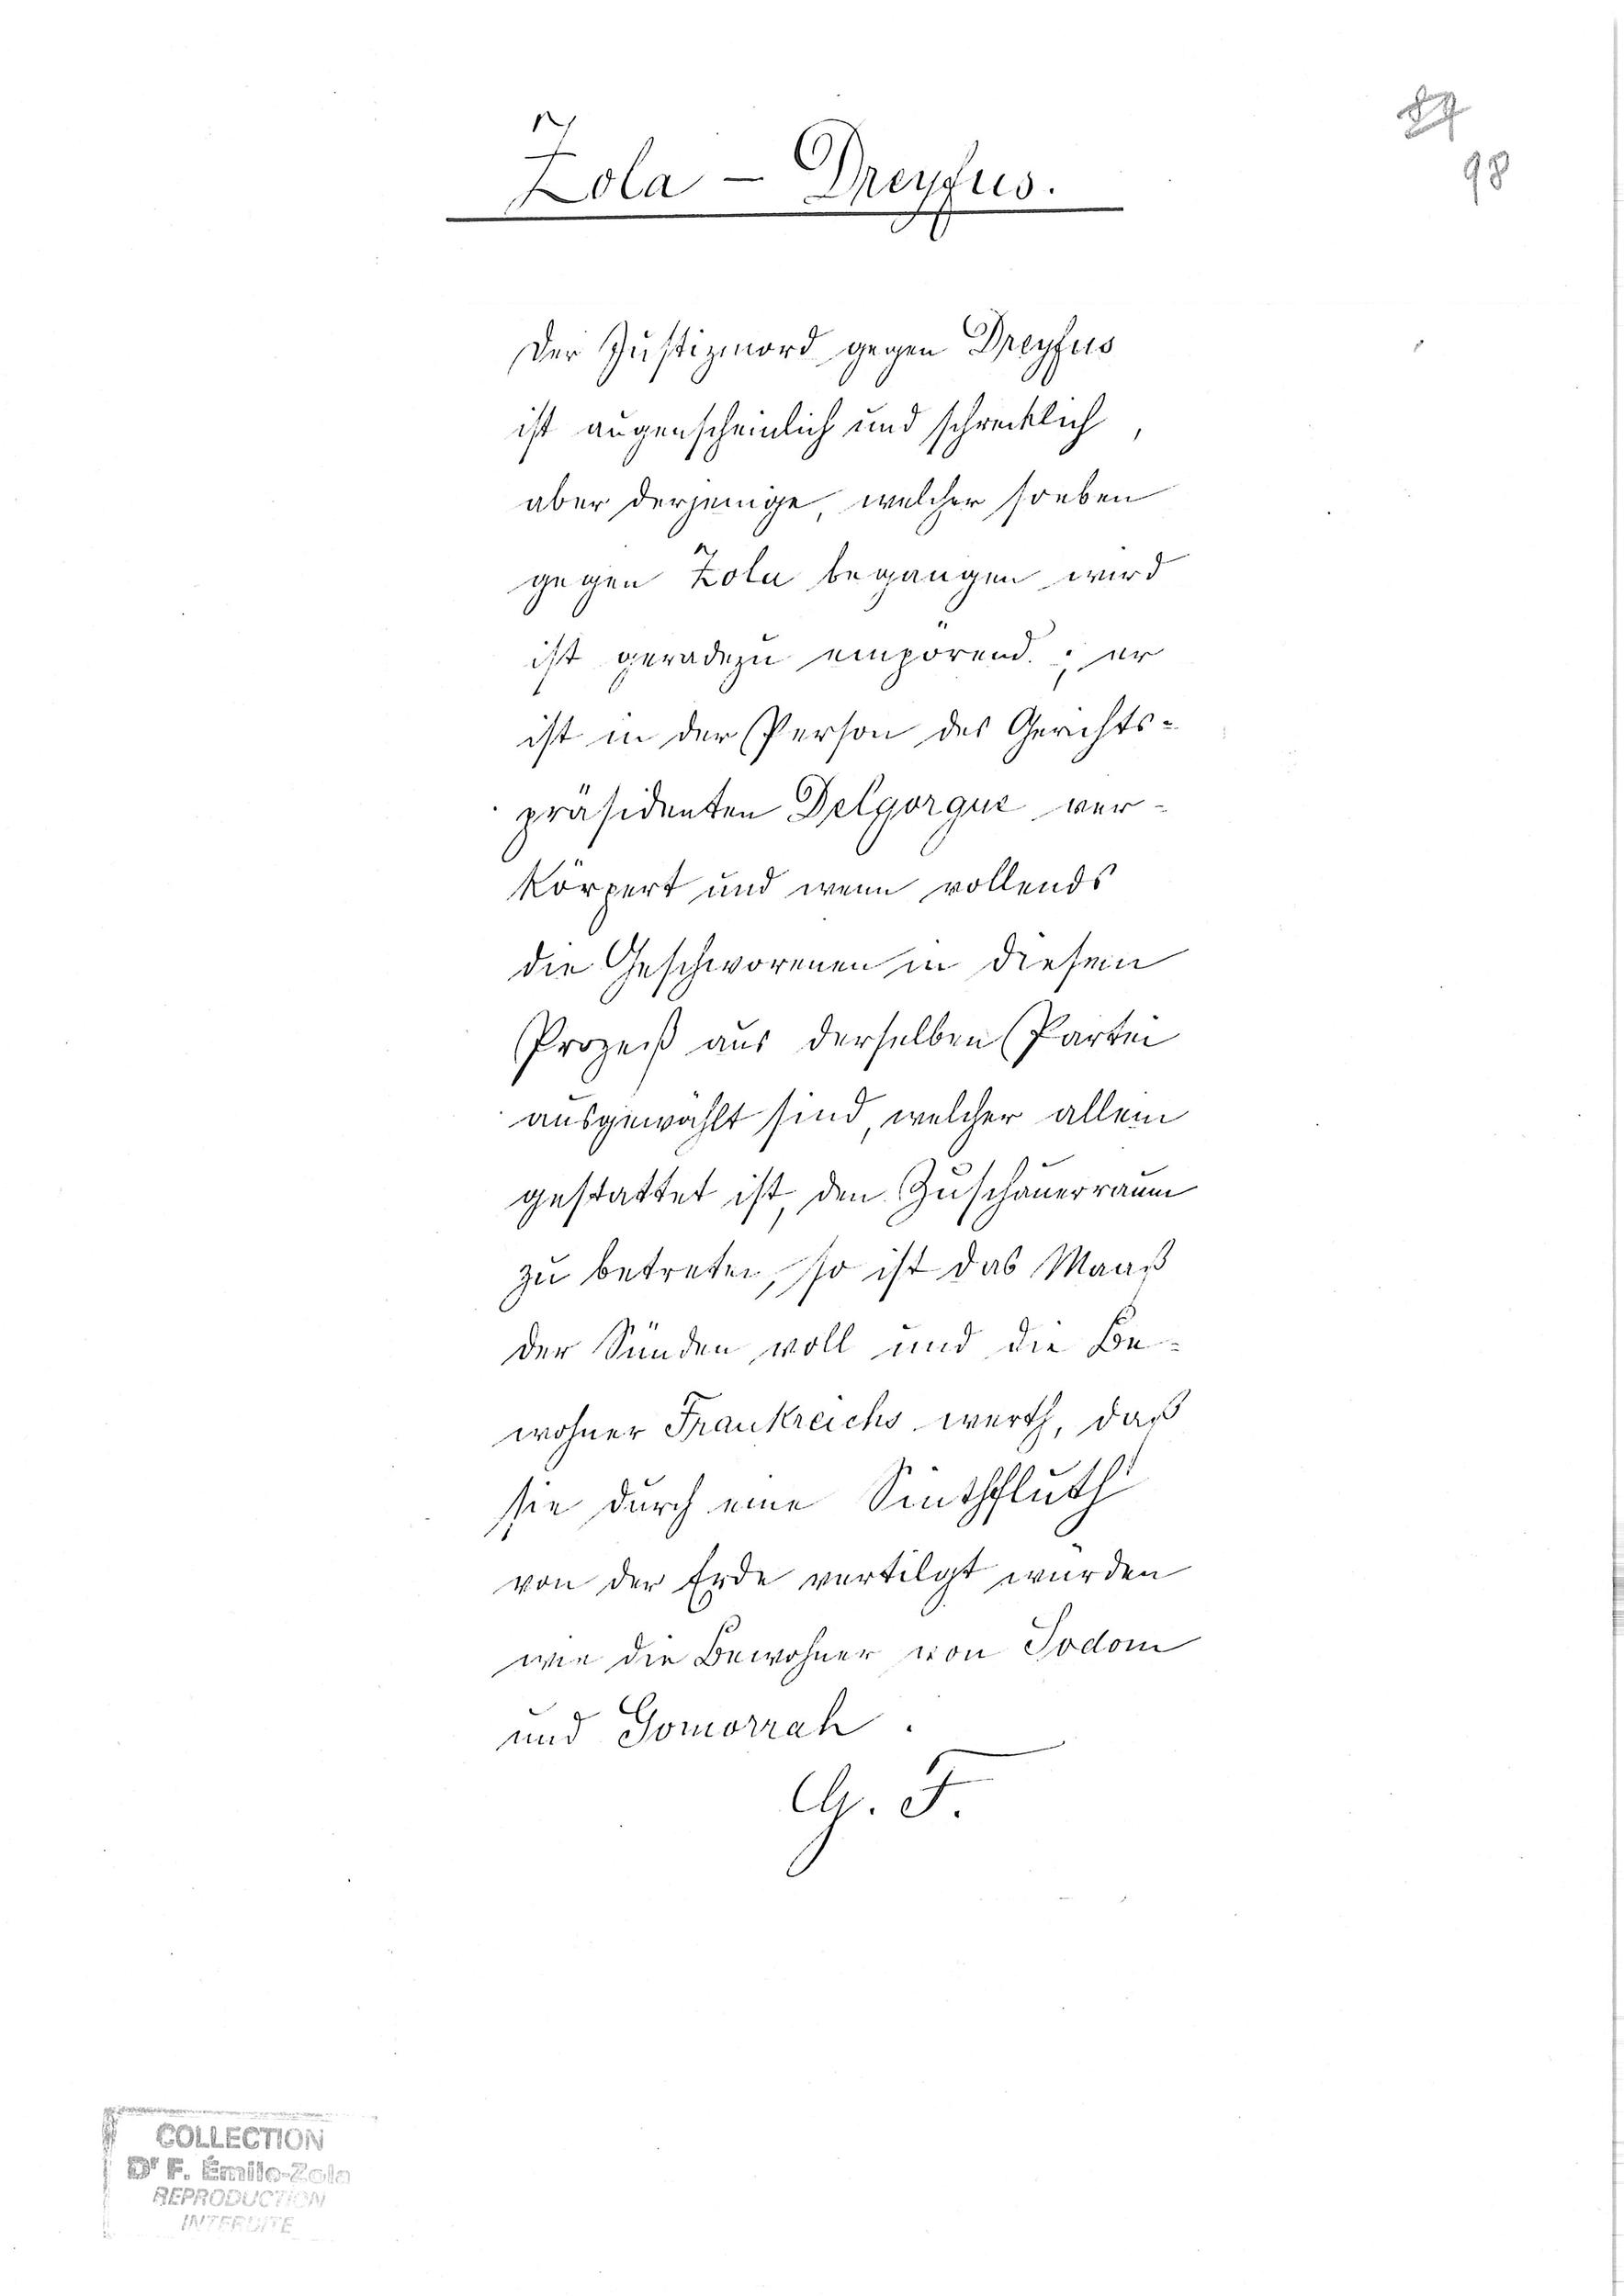 87
98
Zola – Dreyfus.
Der Justizmord gegen Dreyfus
ist augenscheinlich und schrecklich,
aber derjenige, welcher soeben
gegen Zola begangen wird
ist geradezu empörend. ; er
ist in der Person des Gerichts-
präsidenten Delgorgue ver-
körpert und wenn vollends
die Geschworenen in diesem
Prozeß aus derselben Partei
ausgewählt sind, welcher allein
gestattet ist, den Zuschauerraum
zu betreten, so ist das Maaß
der Sünden voll und die Be-
wohner Frankreichs werth, daß
sie durch eine Sinthfluth
von der Erde vertilgt würden
wie die Bewohner von Sodom
und Gomorrah.
G. F.
COLLECTION
Dr F. Émile-Zola
REPRODUCTION
INTERDITE